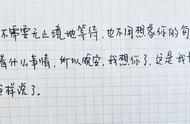 不需要无止境地等待,也不用想容你的句
有什么事情,所以晚安,我想你了,这是我
这样说了。